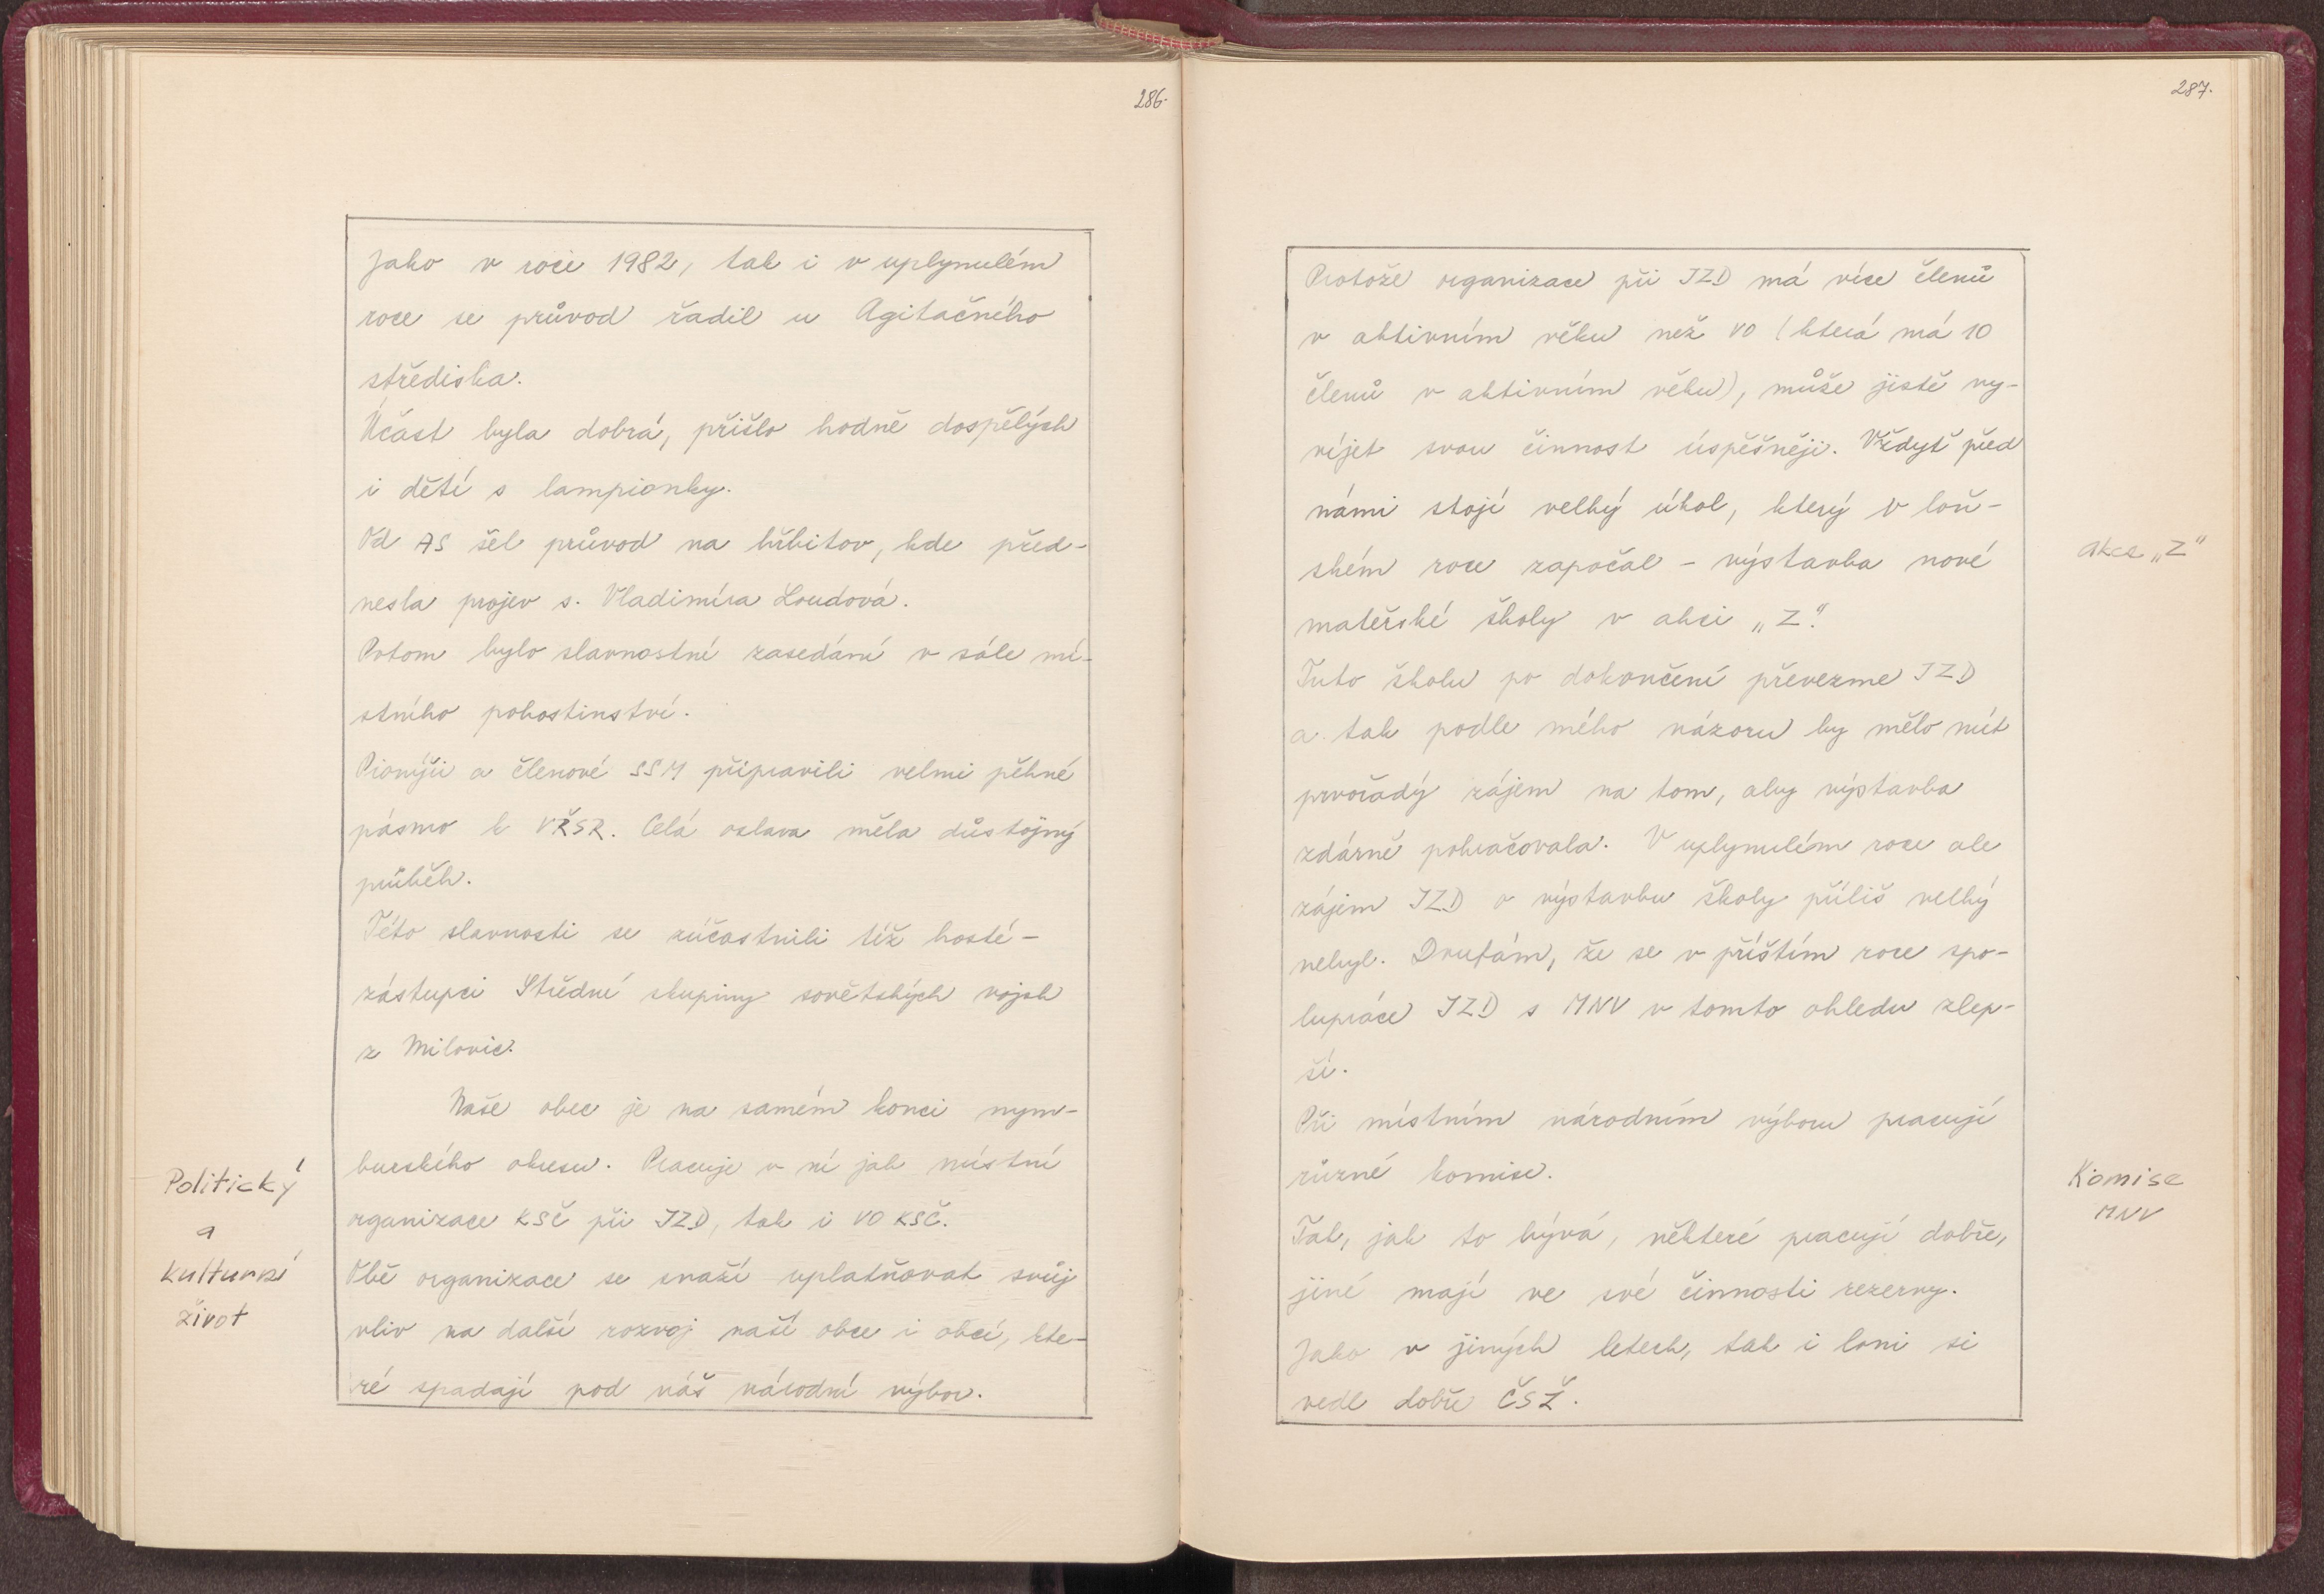 286.
Jako v roce 1982, tak i v uplynulém
roce se průvod řadil u Agitačního
střediska.
Účast byla dobrá, přišlo hodně dospělých
i dětí s lampionky.
Od AS šel průvod na hřbitov, kde před-
nesla projev s. Vladimíra Loudová.
Potom bylo slavnostní zasedání v sále mí-
stního pohostinství.
Pionýři a členové SSM připravili velmi pěkné
pásmo k VŘSR. Celá oslava měla důstojný
průběh.
Této slavnosti se zúčastnili též hosté -
zástupci Střední skupiny sovětských vojsk
z Milovic.
Naše obec je na samém konci nym-
burského okresu. Pracuje v ní jak místní
Politický
organizace KSČ při JZD, tak i VO KSČ.
a
kulturní
Obě organizace se snaží uplatňovat svůj
život
vliv na další rozvoj naší obce i obcí, kte-
ré spadají pod náš národní výbor.
287.
Protože organizace při JZD má více členů
v aktivním věku než VO (která má 10
členů v aktivním věku), může jistě vy-
víjet svou činnost úspěšněji. Vždyť před
námi stojí velký úkol, který v loň-
ském roce započal - výstavba nové
Akce „Z"
mateřské školy v akci „Z".
Tuto školu po dokončení převezme JZD
a tak podle mého názoru by mělo mít
prvořadý zájem na tom, aby výstavba
zdárně pokračovala. V uplynulém roce ale
zájem JZD o výstavbu školy příliš velký
nebyl. Doufám, že se v příštím roce spo-
lupráce JZD s MNV v tomto ohledu zlep-
ší.
Při místním národním výboru pracují
různé komise.
Komise
MNV
Tak, jak to bývá, některé pracují dobře,
jiné mají ve své činnosti rezervy.
Jako v jiných letech, tak i loni si
vedl dobře ČSŽ.